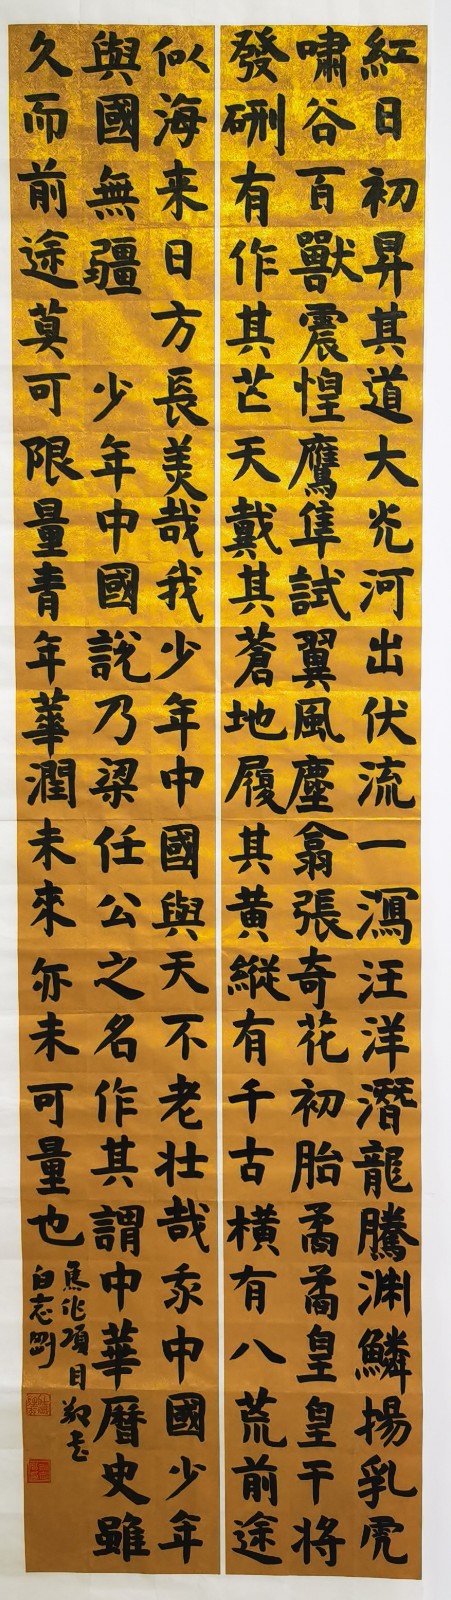 紅日初昇其道大光河出伏流一瀉汪洋潛龍騰淵鱗揚乳虎
嘯谷百獸震惶鷹隼試翼風塵翕張奇花初胎矞矞皇皇干将
發硎有作其芒天戴其蒼地履其黃縱有千古橫有八荒前途
似海来日方長美哉我少年中國與天不老壮哉我中國少年
與國無疆 少年中國說乃梁任公之名作其謂中華曆史雖
久而前途莫可限量青年華潤未來亦未可量也
焦作項目
白志